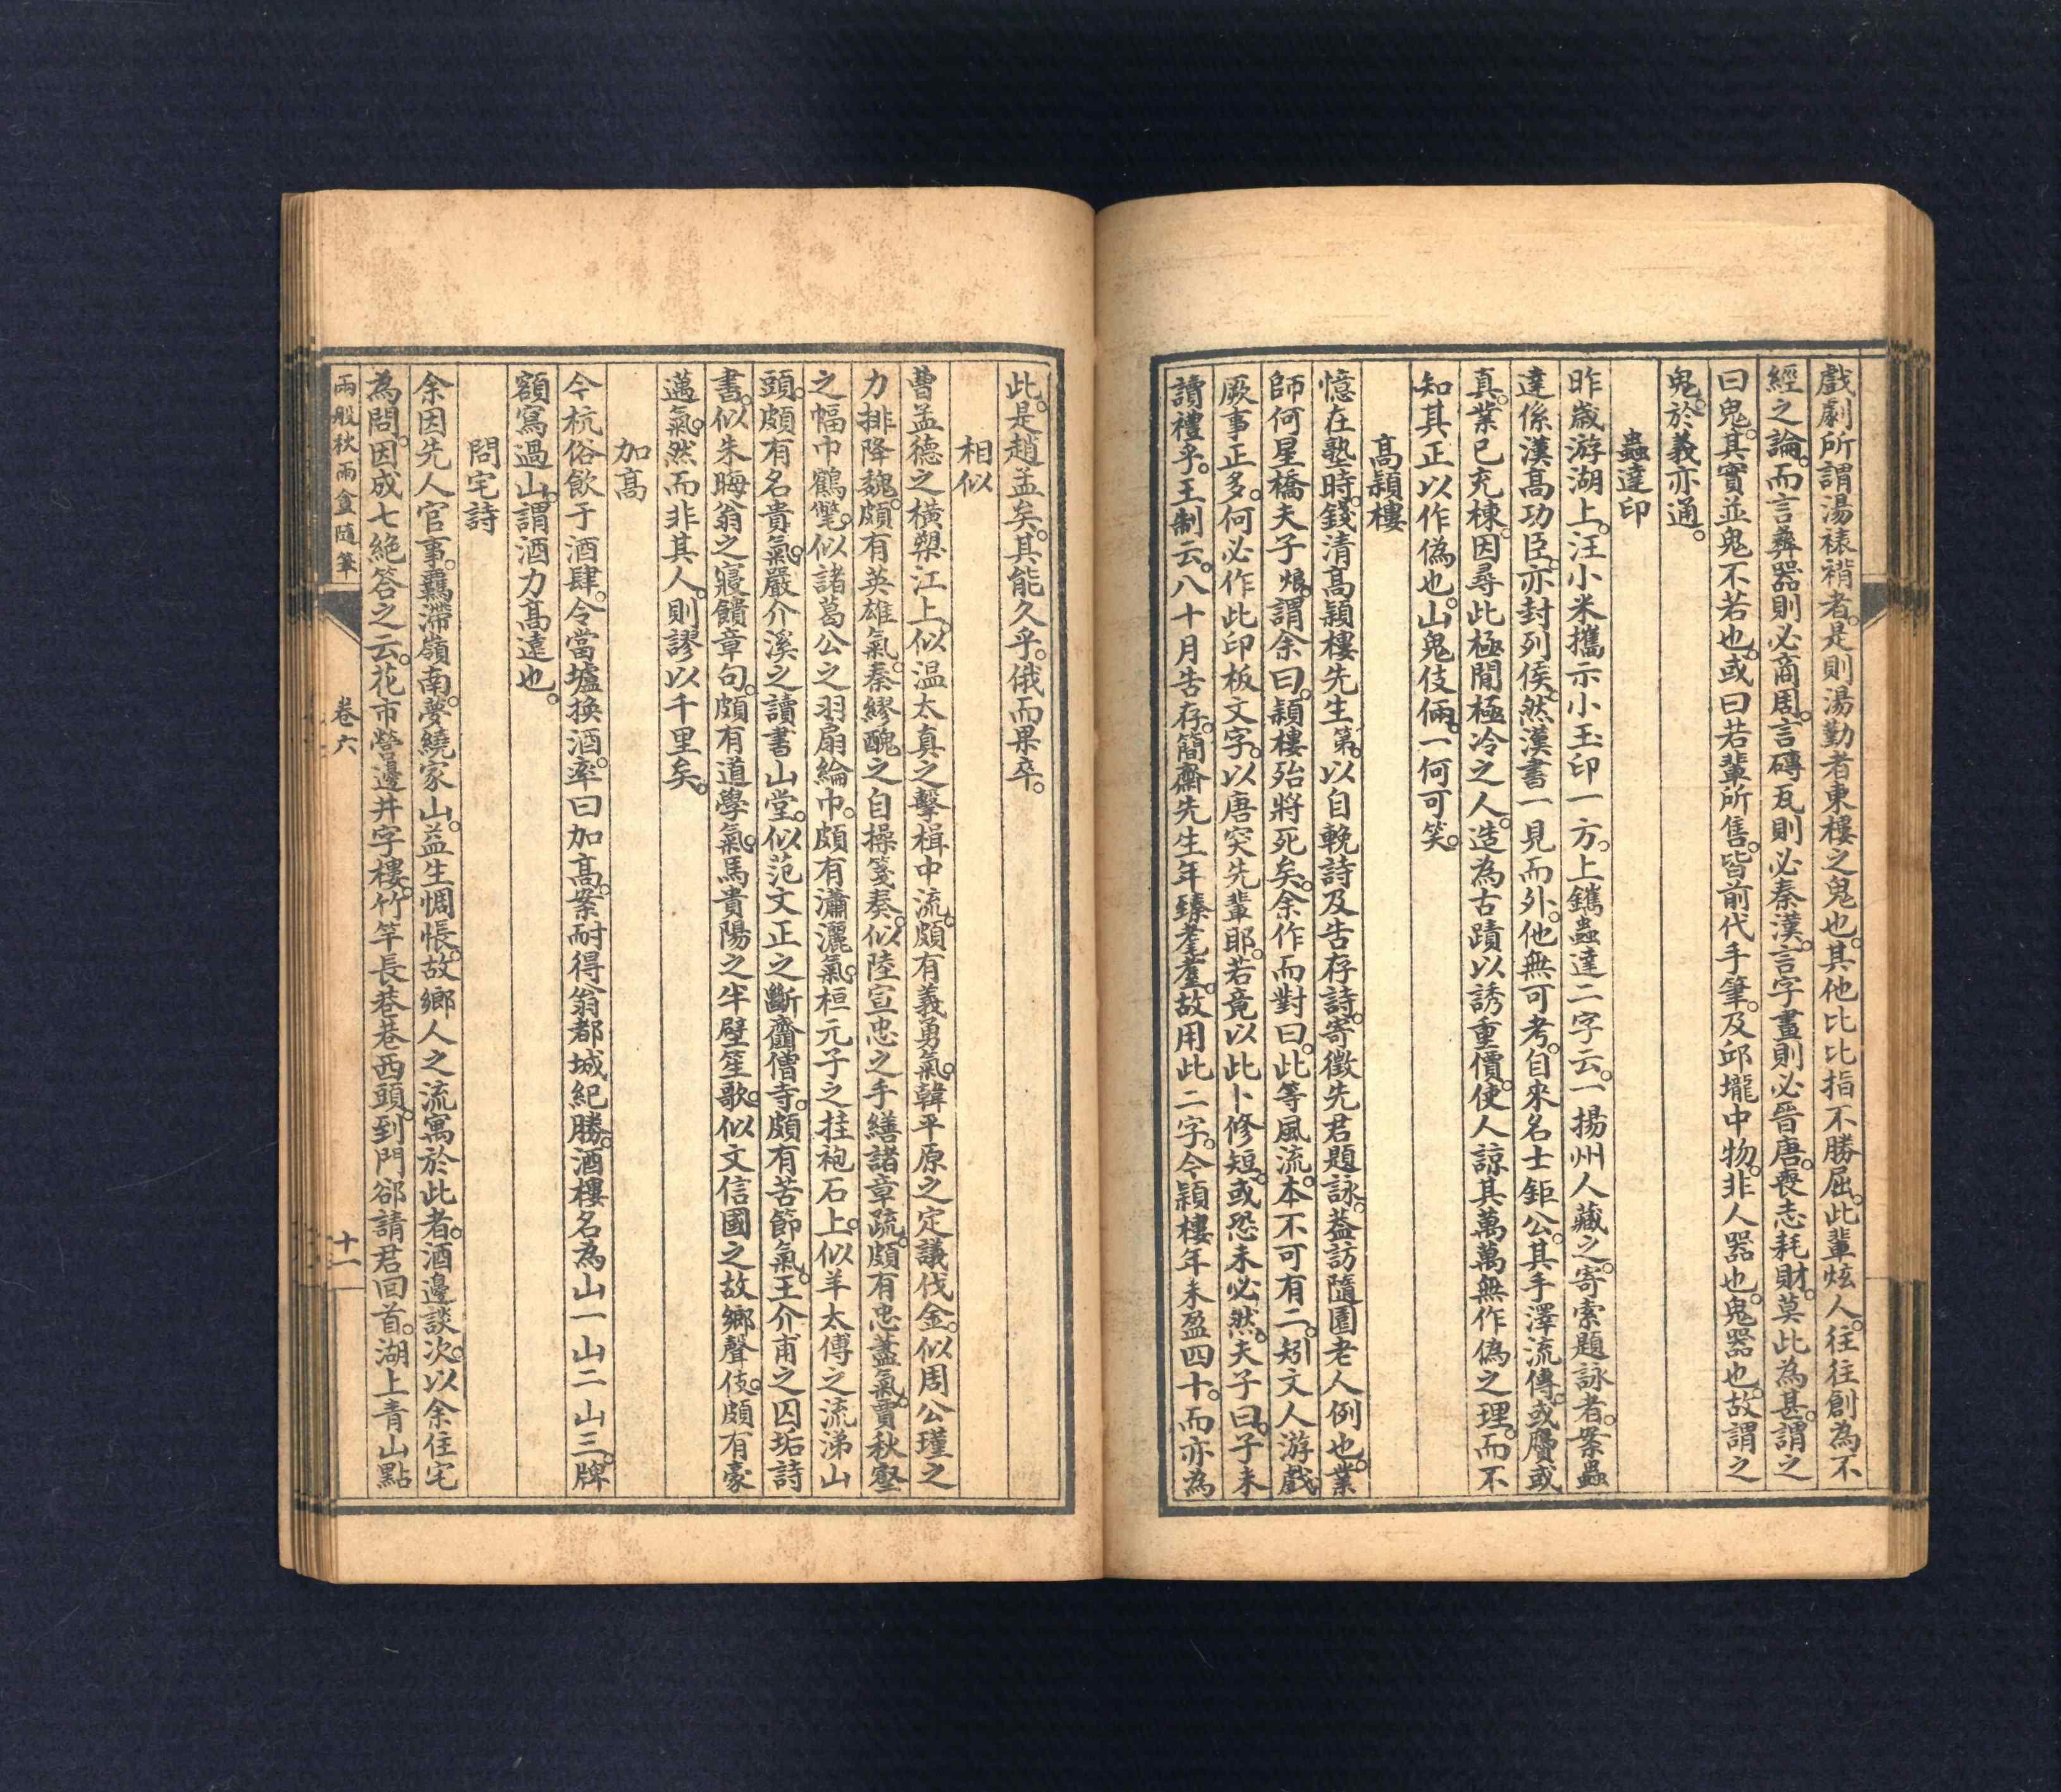 戲劇所謂湯裱褙者。是則湯勤者東樓之鬼也。其他比比指不勝屈。此輩炫人。往往創為不
經之論。而言彝器則必商周。言磚瓦則必秦漢。言字畫則必晉唐。喪志耗財。莫此為甚。謂之
曰鬼。其實並鬼不若也。或曰若輩所售。皆前代手筆。及邱壠中物。非人器也。鬼器也。故謂之
鬼。於義亦通。
蟲達印
昨歲游湖上。汪小米攜示小玉印一方。上鐫蟲達二字云。一揚州人藏之。寄索題詠者。案蟲
達係漢高功臣。亦封列侯。然漢書一見而外。他無可考。自來名士鉅公。其手澤流傳。或贗或
真。業已充棟。因尋此極閒極冷之人。造為古蹟以誘重價。使人諒其萬萬無作偽之理。而不
知其正以作偽也。山鬼伎倆。一何可笑。
高穎樓
憶在塾時。錢清高穎樓先生第。以自輓詩及告存詩。寄徵先君題詠。葢訪隨園老人例也。業
師何星橋夫子烺。謂余曰。穎樓殆將死矣。余作而對曰。此等風流。本不可有二。矧文人游戲
厥事正多。何必作此印板文字。以唐突先輩耶。若竟以此卜修短。或恐未必然。夫子曰。子未
讀禮乎。王制云。八十月告存。簡齋先生年臻耄耋。故用此二字。今穎樓年未盈四十。而亦為
此。是趙孟矣。其能久乎。俄而果卒。
相似
曹孟德之橫槊江上。似温太真之擊楫中流。頗有義勇氣。韓平原之定議伐金。似周公瑾之
力排降魏。頗有英雄氣。秦繆醜之自操箋奏。似陸宣忠之手繕諸章疏。頗有忠藎氣。賈秋壑
之幅巾鶴氅。似諸葛公之羽扇綸巾。頗有瀟灑氣。桓元子之挂袍石上。似羊太傅之流涕山
頭。頗有名貴氣。嚴介溪之讀書山堂。似范文正之斷齏僧寺。頗有苦節氣。王介甫之囚垢詩
書。似朱晦翁之寢饋章句。頗有道學氣。馬貴陽之半壁笙歌。似文信國之故鄉聲伎。頗有豪
邁氣。然而非其人。則謬以千里矣。
加高
今杭俗飲于酒肆。令當壚換酒。率曰加高。案耐得翁都城紀勝。酒樓名為山一山二山三。牌
額寫過山。謂酒力高遠也。
問宅詩
余因先人官事。羈滯嶺南。夢繞家山。益生惆悵。故鄉人之流寓於此者。酒邊談次。以余住宅
為問。因成七絕答之云。花市營邊井字樓。竹竿長巷巷西頭。到門郤請君回首。湖上青山點
兩般秋雨盦隨筆
卷六
十一